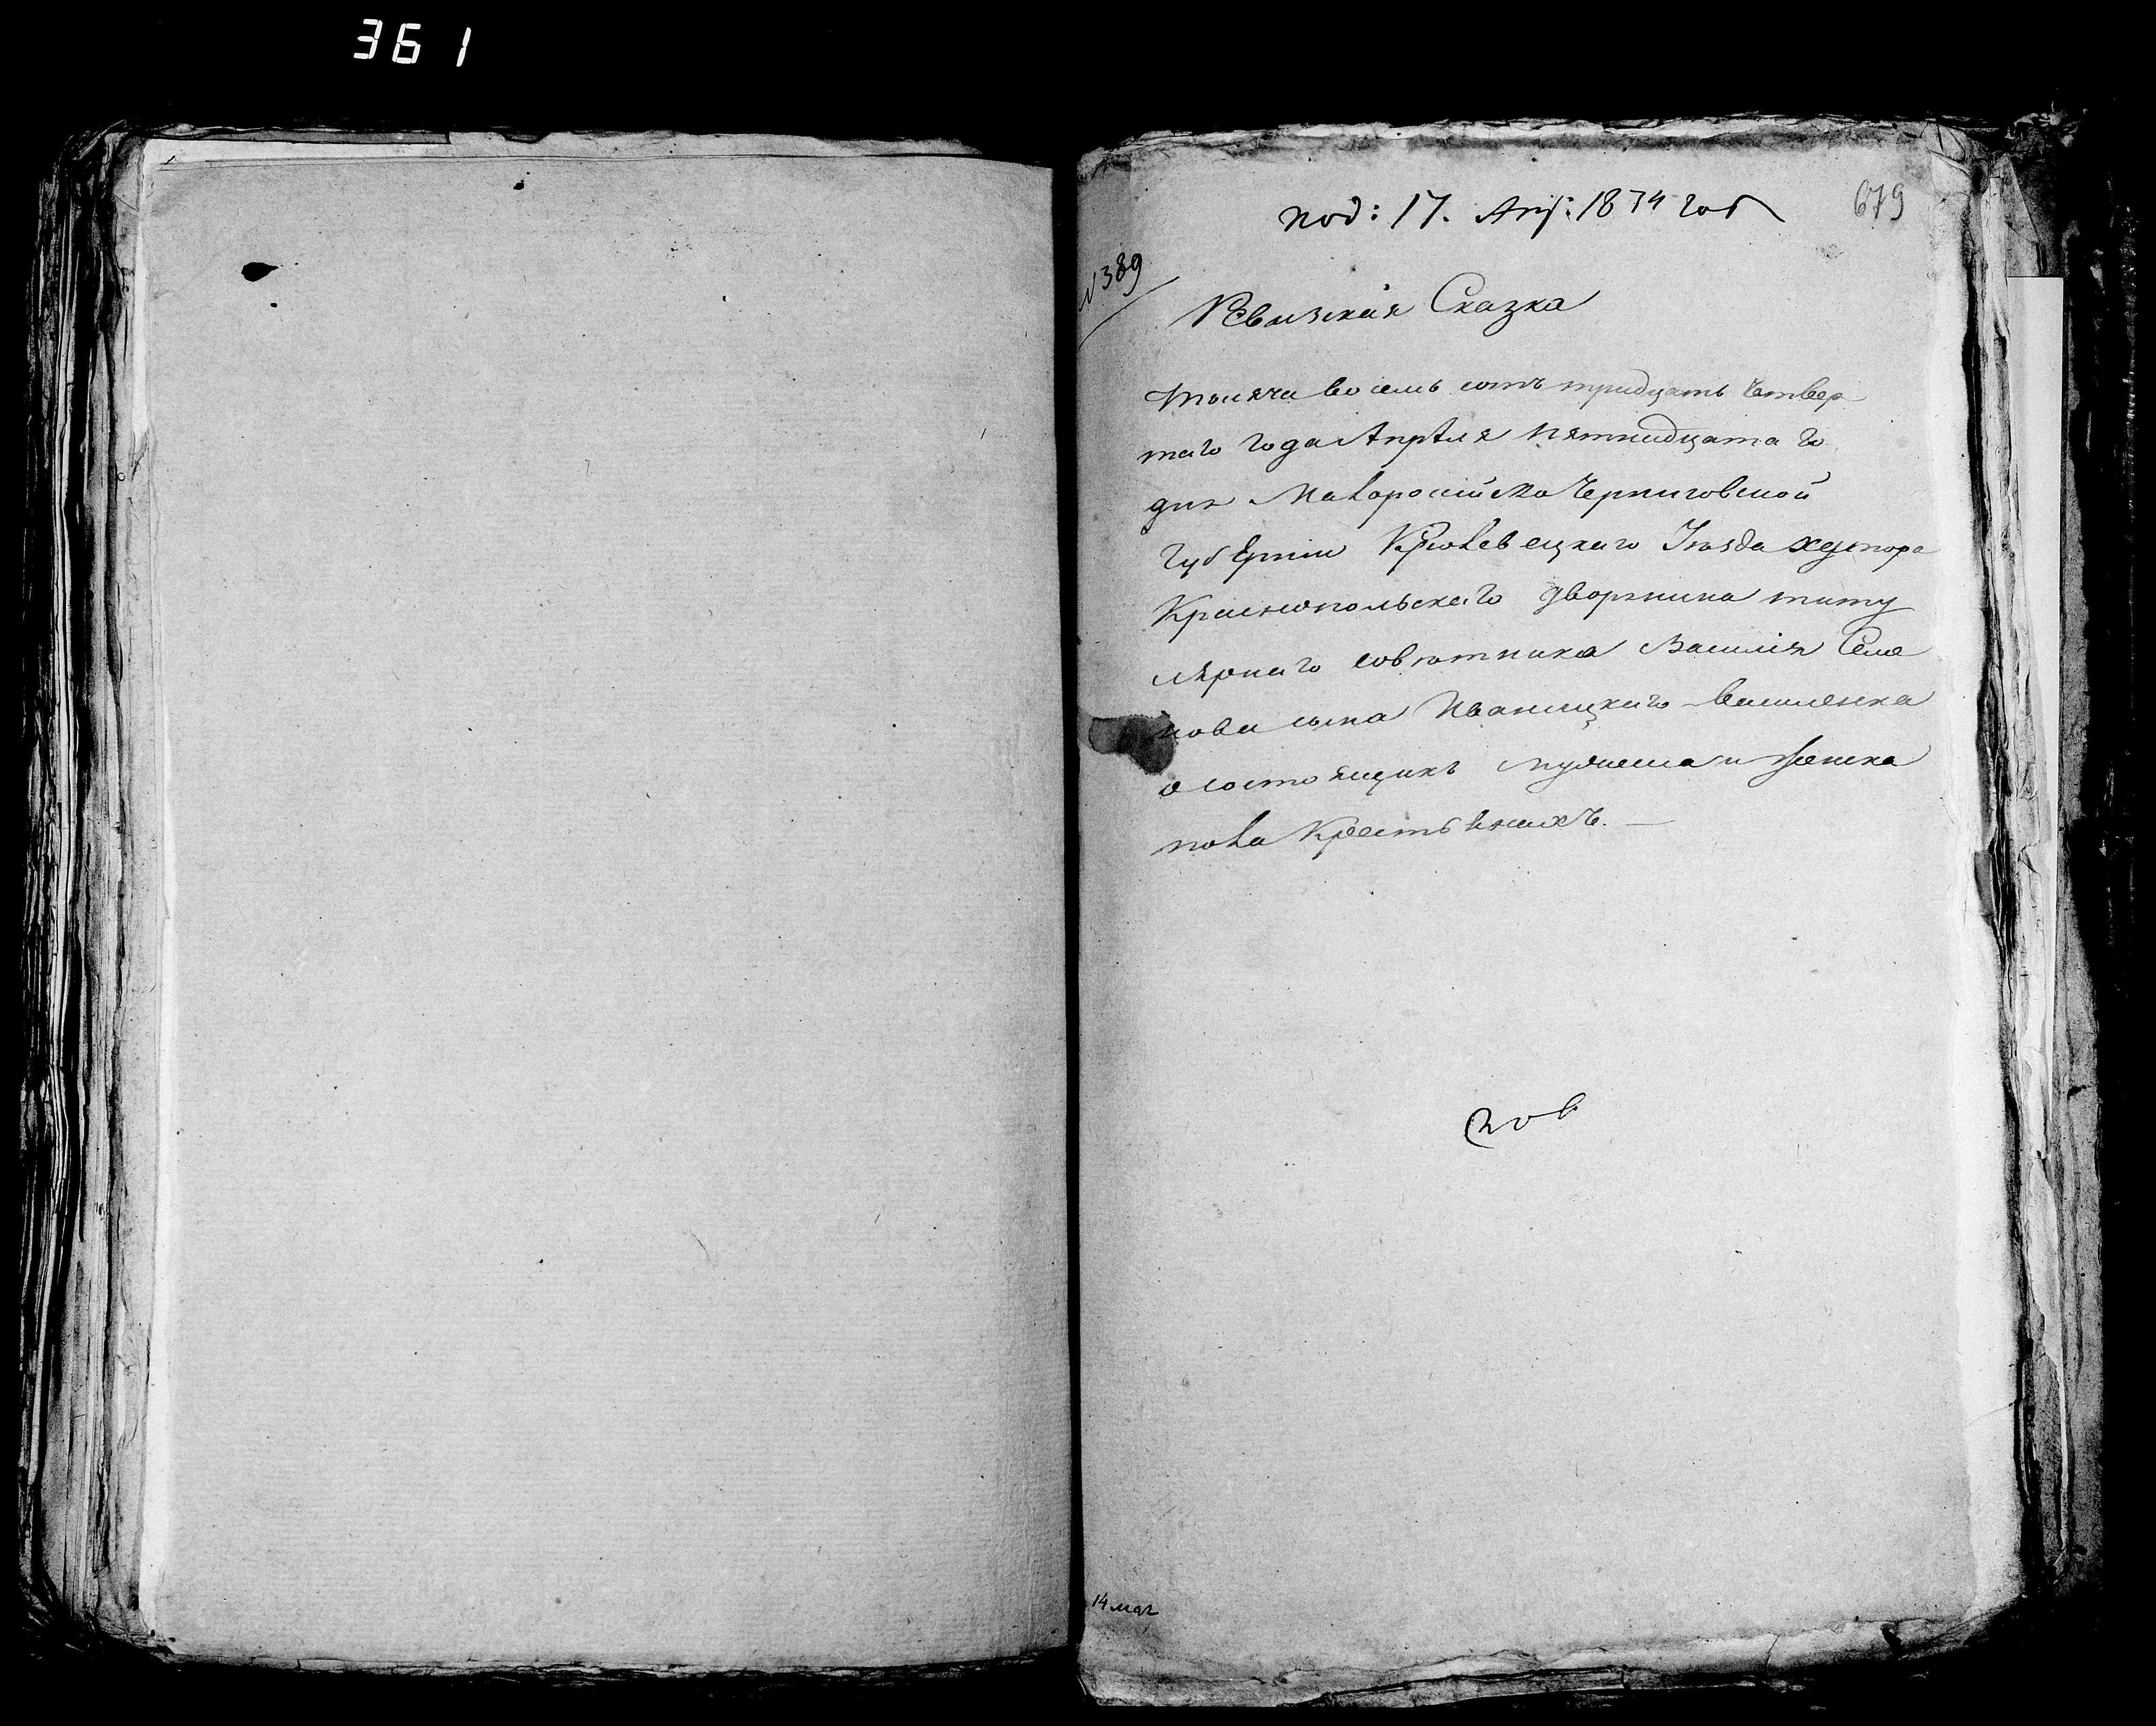 361
под: 17. Апр: 1834 год
679
№389
Ревизская Сказка
тысяча восемь сотъ тридцать Четвер
таго года Апрѣля пятнадцатаго
дня Малоросійско Черниговской
Губерніи Кролевецкаго Уѣзда хутора
Краснопольскаго дворянина титу
лярнаго совѣтника Василія Семе
нова сына Иваницкаго-Василенка
о состоящихъ мужеска и женска
пола Крестьянахъ.
14 мая